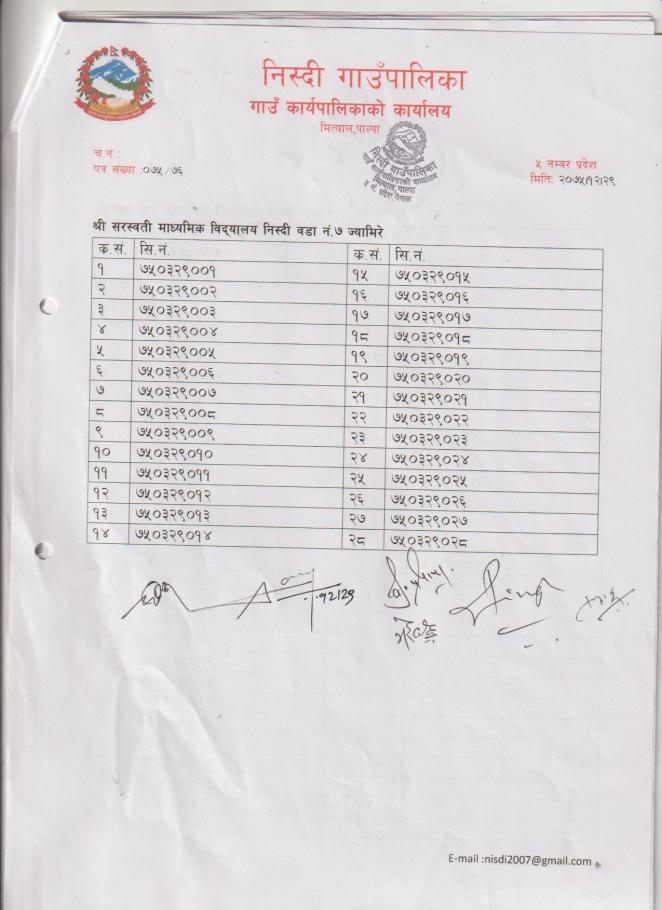 निस्दी गाउँपालिका
गाउँ कार्यपालिकाको कार्यालय
मित्याल,पाल्पा
च.नं :
पत्र संख्या :०७५/७६
५ नम्बर प्रदेश
मितिः २०७५।१२।२९
निस्दी गाउँपालिका
गाउँ कार्यपालिकाको कार्यालय
मित्याल, पाल्पा
५ नं. प्रदेश, नेपाल
श्री सरस्वती माध्यमिक विद्यालय निस्दी वडा नं.७ ज्यामिरे
क.सं. सि.नं. क.सं. सि.नं.
१ ७५०३२९००१ १५ ७५०३२९०१५
२ ७५०३२९००२ १६ ७५०३२९०१६
३ ७५०३२९००३ १७ ७५०३२९०१७
४ ७५०३२९००४ १८ ७५०३२९०१८
५ ७५०३२९००५ १९ ७५०३२९०१९
६ ७५०३२९००६ २० ७५०३२९०२०
७ ७५०३२९००७ २१ ७५०३२९०२१
८ ७५०३२९००८ २२ ७५०३२९०२२
९ ७५०३२९००९ २३ ७५०३२९०२३
१० ७५०३२९०१० २४ ७५०३२९०२४
११ ७५०३२९०११ २५ ७५०३२९०२५
१२ ७५०३२९०१२ २६ ७५०३२९०२६
१३ ७५०३२९०१३ २७ ७५०३२९०२७
१४ ७५०३२९०१४ २८ ७५०३२९०२८
E-mail :nisdi2007@gmail.com